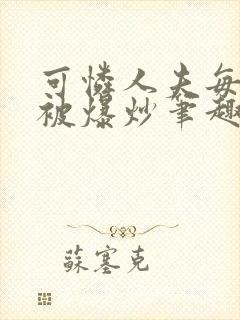 可憐人夫每
被爆炒筆趣
蘇塞克